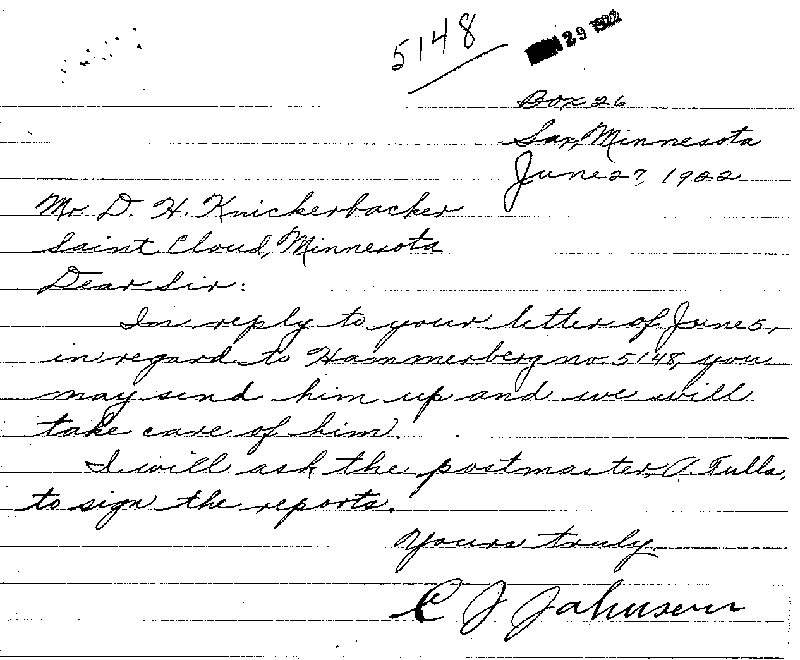 5148
29 1922
Box 26
Sax, Minnesota
June 27, 1922
Mr. D. H. Knickerbacker
Saint Cloud, Minnesota
Dear Sir:
In reply to your letter of June 5,
in regard to Hammerberg no. 5148, you
may send him up and we will
take care of him.
I will ask the postmaster, A. Tulla,
to sign the reports.
Yours truly
C J Johnson